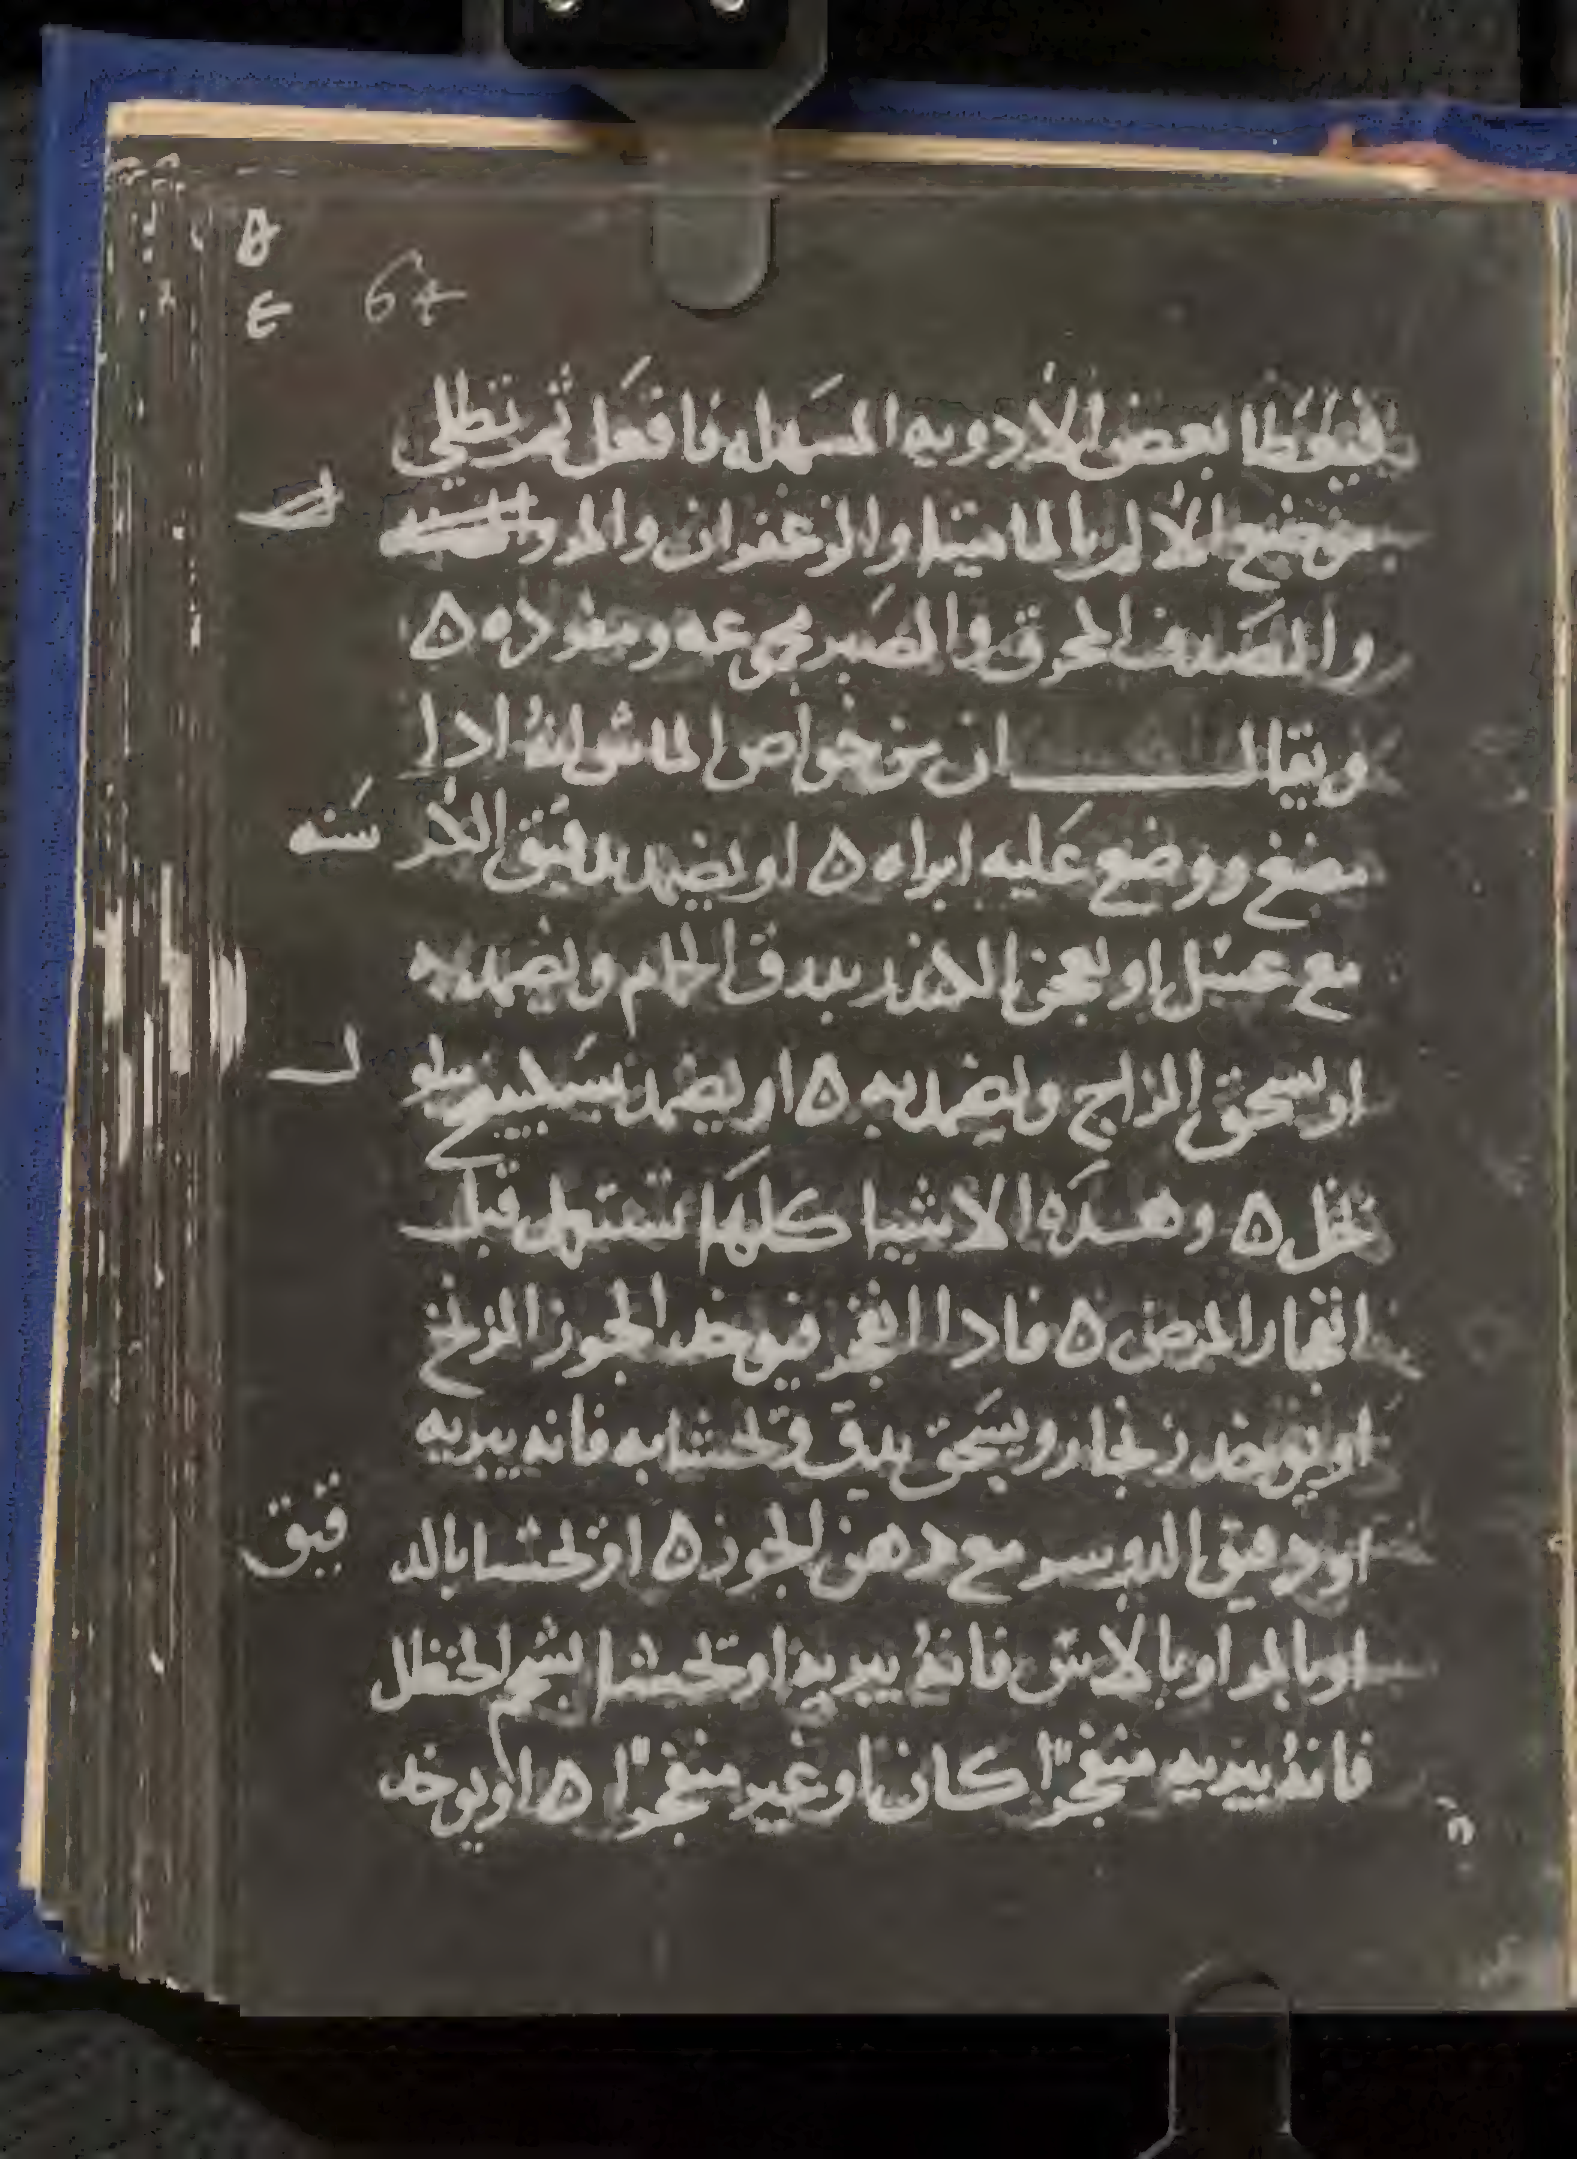 64
فيعطا بعض الأدويه المسهله فافعل ثم تطلي
موضع الألم بالماميتا والزعفران والمر و
والصدف المحرق والصبر مجموعه ومفرده ٥
ويقال ان من خواص الماش انهُ ادا
مضغ ووضع عليه ابراه ٥ او يضمد بدقيق الكر سنه
مع عسل او يعجن الكندر بدرق الحمام ويضمد به
او يسحق الزاج ويضمد به ٥ او يضمد بسكبينج محلول
بخل ٥ وهده الاشيا كلها تستعمل قبل
انفجار المرض ٥ فادا انفجر فيوخد الجوز الزنخ
او يوخد زنجار ويسحق بدق وتحشا به فانه يبريه
او دقيق الدوسر مع دهن الجوز ٥ او تحشا بالد قيق
او بالمر او بالاس فانهُ يبريه او تحشا بشحم الحنظل
فانهُ يبريه منفجرًا كان او غير منفجرًا ٥ او يوخد